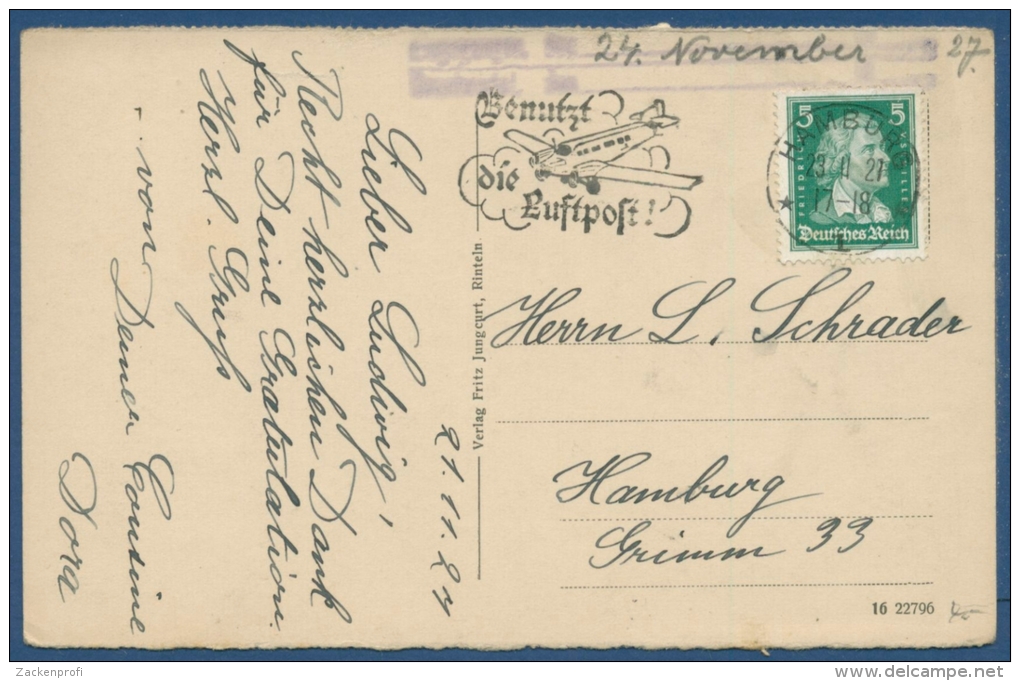 24. November 27.
Benutzt
die
Luftpost!
5 5
FRIEDRICH V. SCHILLER
Deutsches Reich
HAMBURG
17-18
1
Herrn L. Schrader
Hamburg
Grimm 33
16 22796
Verlag Fritz Jungcurt, Rinteln
21.11.27
Lieber Ludwig,
Recht herzlichen Dank
für Deine Gratulation.
Herzl. Gruß
- von Deiner Cousine
Dora
Zackenprofi
delcampe.net